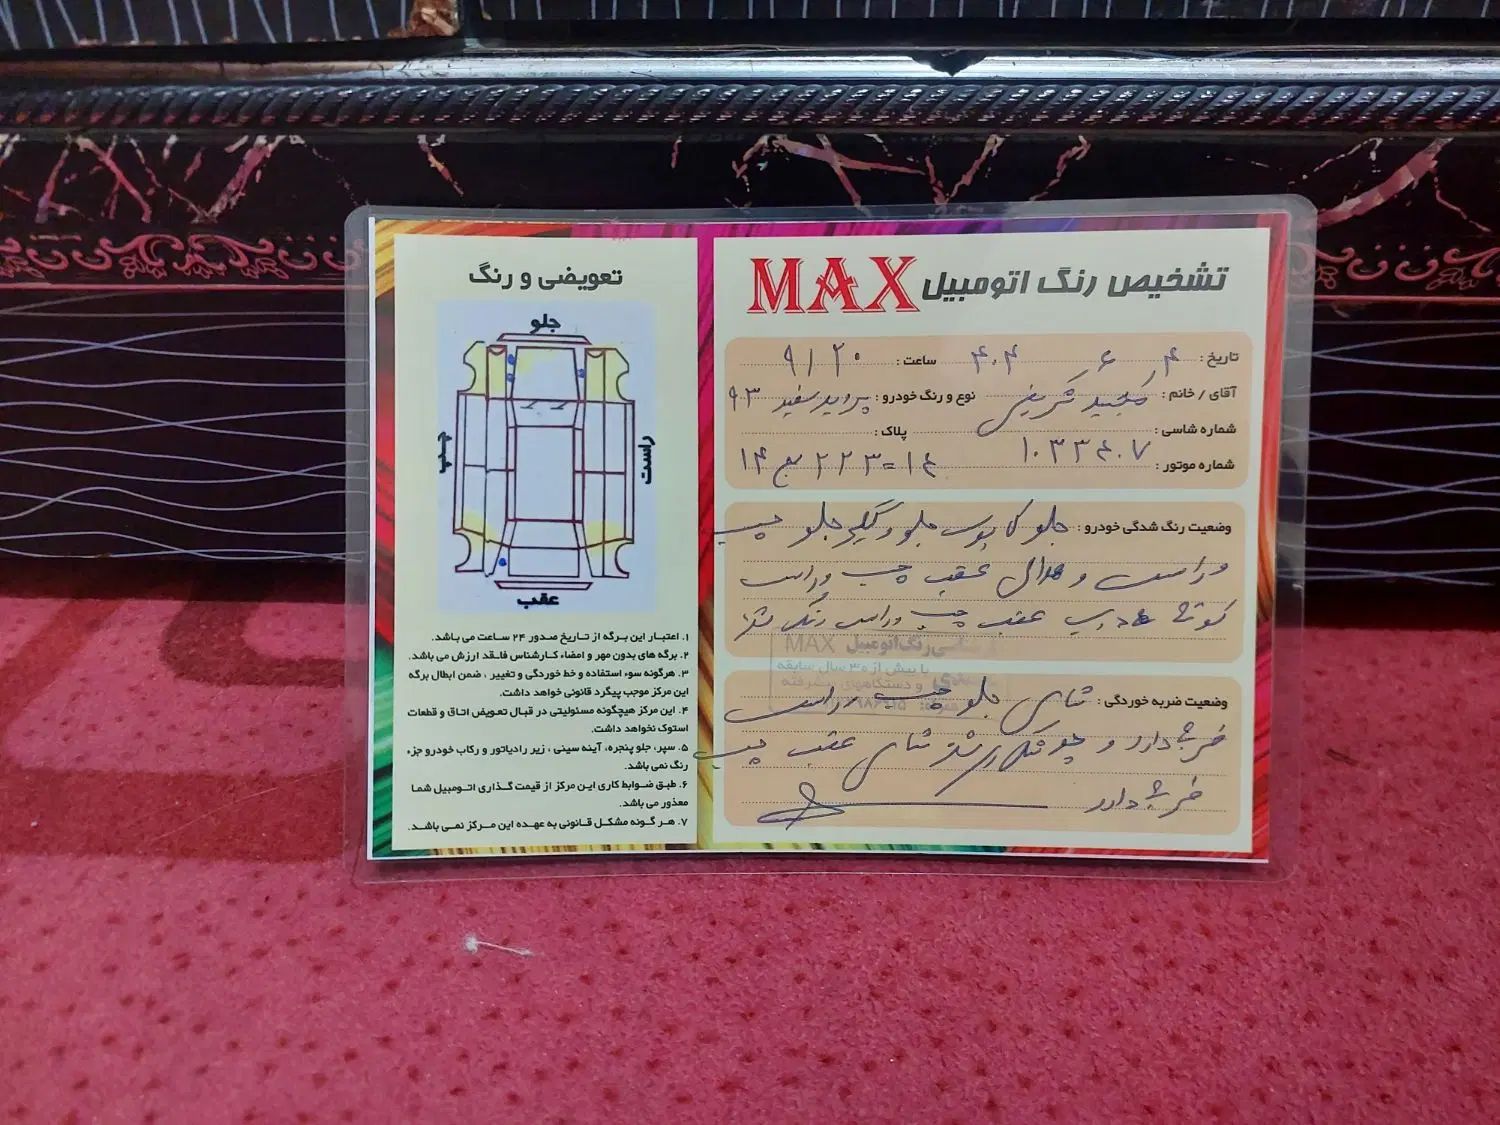 تشخیص رنگ اتومبیل MAX
تاریخ: ۴ ۶ ۴۰۴ ساعت: ۹/۲۰
آقای / خانم: مجید شریفی نوع و رنگ خودرو: پراید سفید ۹۳
شماره شاسی: ۱۰۳۳۶۰۷ پلاک:
شماره موتور: ۱۴ ۲۲۳ = ۱۶
وضعیت رنگ شدگی خودرو: جلو کاپوت جلو و گلگیر جلو چپ
و راست و عقب چپ و راست
عقب چپ و راست رنگ شد
وضعیت ضربه خوردگی: شاسی جلو چپ و راست
ضربه دارد و شاسی عقب چپ
ضربه دارد
MAX
تعویضی و رنگ
جلو
چپ
راست
عقب
۱. اعتبار این برگه از تاریخ صدور ۲۴ ساعت می باشد.
۲. برگه های بدون مهر و امضاء کارشناس فاقد ارزش می باشد.
۳. هرگونه سوء استفاده و خط خوردگی و تغییر ، ضمن ابطال برگه
این مرکز موجب پیگرد قانونی خواهد داشت.
۴. این مرکز هیچگونه مسئولیتی در قبال تعویض اتاق و قطعات
استوک نخواهد داشت.
۵. سپر، جلو پنجره، آینه سینی ، زیر رادیاتور و رکاب خودرو جزء
رنگ نمی باشد.
۶. طبق ضوابط کاری این مرکز از قیمت گذاری اتومبیل شما
معذور می باشد.
۷. هر گونه مشکل قانونی به عهده این مرکز نمی باشد.